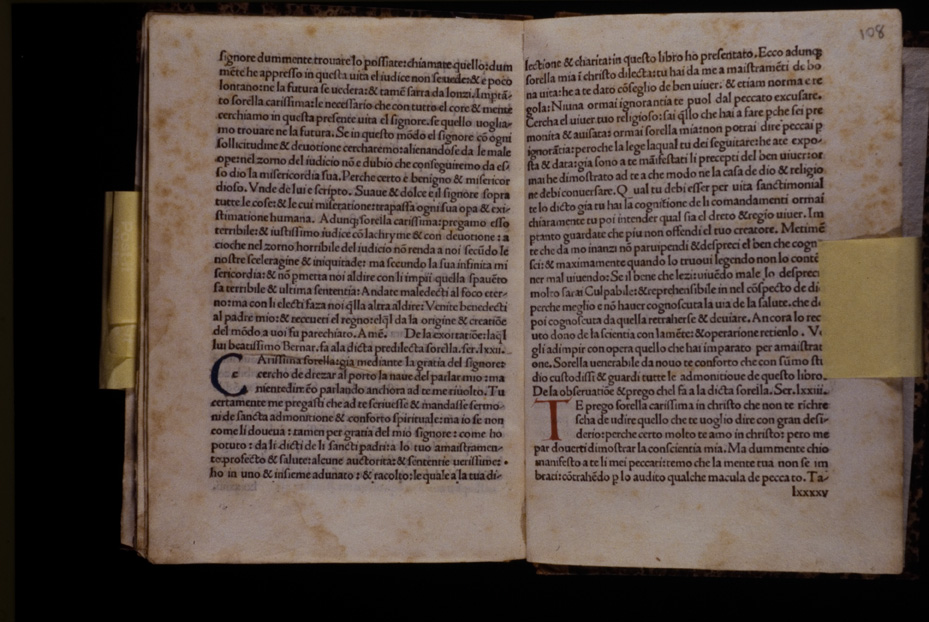 signore dum mente trouare lo possiate: chiamate quello: dum
mẽte he appresso in questa uita el iudice non se uede: & e poco
lontano: ne la futura se uedera: & tamẽ sarra da lonzi. Imptã-
to sorella carissima: le necessario che con tutto el core & mente
cerchiamo in questa presente uita el signore. se quello uoglia-
mo trouare ne la futura. Se in questo mõdo el signore cõ ogni
sollicitudine & deuotione cercharemo: alienandose da le male
ope: nel zorno del iudicio nõ e dubio che conseguiremo da es-
so dio la misericordia sua. Perche certo e benigno & misericor
dioso. Vnde de lui e scripto. Suaue & dolce e il signore sopra
tutte le cose: & le cui miseratione: trapassa ogni sua opa & exi-
stimatione humana. Adunq; sorella carissima: pregamo esso
terribile: & iustissimo iudice cõ lachryme & con deuotione: a
cioche nel zorno horribile del iudicio nõ renda a noi secũdo le
nostre sceleragine & iniquitade: ma secundo la sua infinita mi
sericordia: & nõ pmetta noi aldire con li impii quella spauẽto
sa terribile & ultima sententia: Andate maledecti al foco eter-
no: ma con li electi faza noi q̃lla altra aldire: Venite benedecti
al padre mio: & receueti el regno: elq̃l da la origine & creatiõe
del mõdo a uoi fu parechiato. Amẽ. De la exortatiõe: laq̃l
lui beatissimo Bernar. fa ala dicta predilecta sorella. ser. lxxii.
CArissima sorella: gia mediante la gratia del signore:
cercho de drezar al porto la naue del parlar mio: ma
nientedimẽo parlando anchora ad te me riuolto. Tu
certamente me pregasti che ad te scriuesse & mandasse sermo-
ni de sancta admonitione & conforto spirituale: ma io se non
come li doueua: tamen per gratia del mio signore: come ho
potuto: da li dicti de li sancti padri: a lo tuo amaistramen-
to: profecto & salute: alcune auctorita: & sententie uerissime:
ho in uno & insieme adunato: & racolto: le quale a la tua di-
108
lectione & charita: in questo libro ho presentato. Ecco adunq;
sorella mia ĩ christo dilecta: tu hai da me amaistramẽti de bo
na uita: he a te dato cõseglio de ben uiuer: & etiam norma e re
gola: Niuna ormai ignorantia te puol dal peccato excusare.
Cerca el uiuer tuo religioso: sai q̃llo che hai a fare pche sei pre
monita & auisata: ormai sorella mia: non potrai dire peccai p
ignorãtia: peroche la lege laqual tu dei seguitare: he ate expo-
sta & data: gia sono a te mãifestati li precepti del ben uiuer: or
mai he dimostrato ad te a che modo ne la casa de dio & religio
ne debi conuersare. Qual tu debi esser per uita sanctimonial
te lo dicto gia tu hai la cognitione de li comandamenti ormai
chiaramente tu poi intender qual sia el dreto & regio uiuer. Im
ptanto guardate che piu non offendi el tuo creatore. Metimẽ
te che da mo inanzi nõ paruipendi & despreci el ben che cogn
sci: & maximamente quando lo truoui legendo non lo contẽ
ner mal uiuendo: Se il bene che lezi: uiuẽdo male lo despreci
molto sarai Culpabile: & reprehensibile in nel cõspecto de di
perche meglio e nõ hauer cognoscuta la uia de la salute. che de
poi cognoscuta da quella retraherse & deuiare. Ancora lo rec
uto dono de la scientia con la mẽte: & operarione retienlo. Vi
gli adimpir con opera quello che hai imparato per amaistrat
one. Sorella uenerabile da nouo te conforto che con sũmo sti
dio custodissi & guardi tutte le admonitioue de questo libro.
De la obseruatiõe & prego chel fa a la dicta sorella. Ser. lxxiii.
TE prego sorella carissima in christo che non te richre
scha de udire quello che te uoglio dire con gran desi-
derio: perche certo molto te amo in christo: pero me
par douerti dimostrar la conscientia mia. Ma dum mente chio
manifesto a te li mei peccati: temo che la mente tua non se im
brati: cõtrahẽdo p lo audito qualche macula de peccato. Ta-
lxxxxv